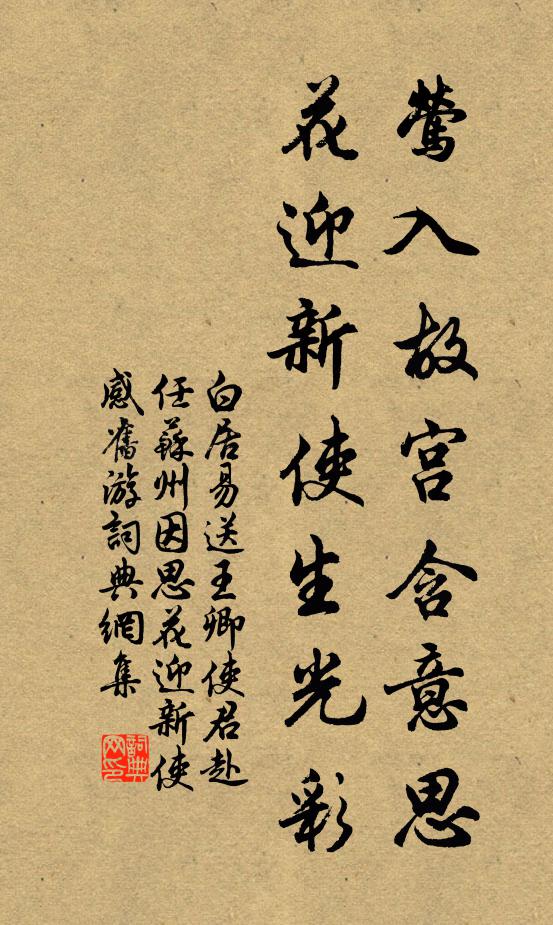 鶯入故宫含意思
花迎新使生光彩
白居易送王卿使君赴
任蘇州因思花迎新使
感舊游詞典網集
詞典
网印